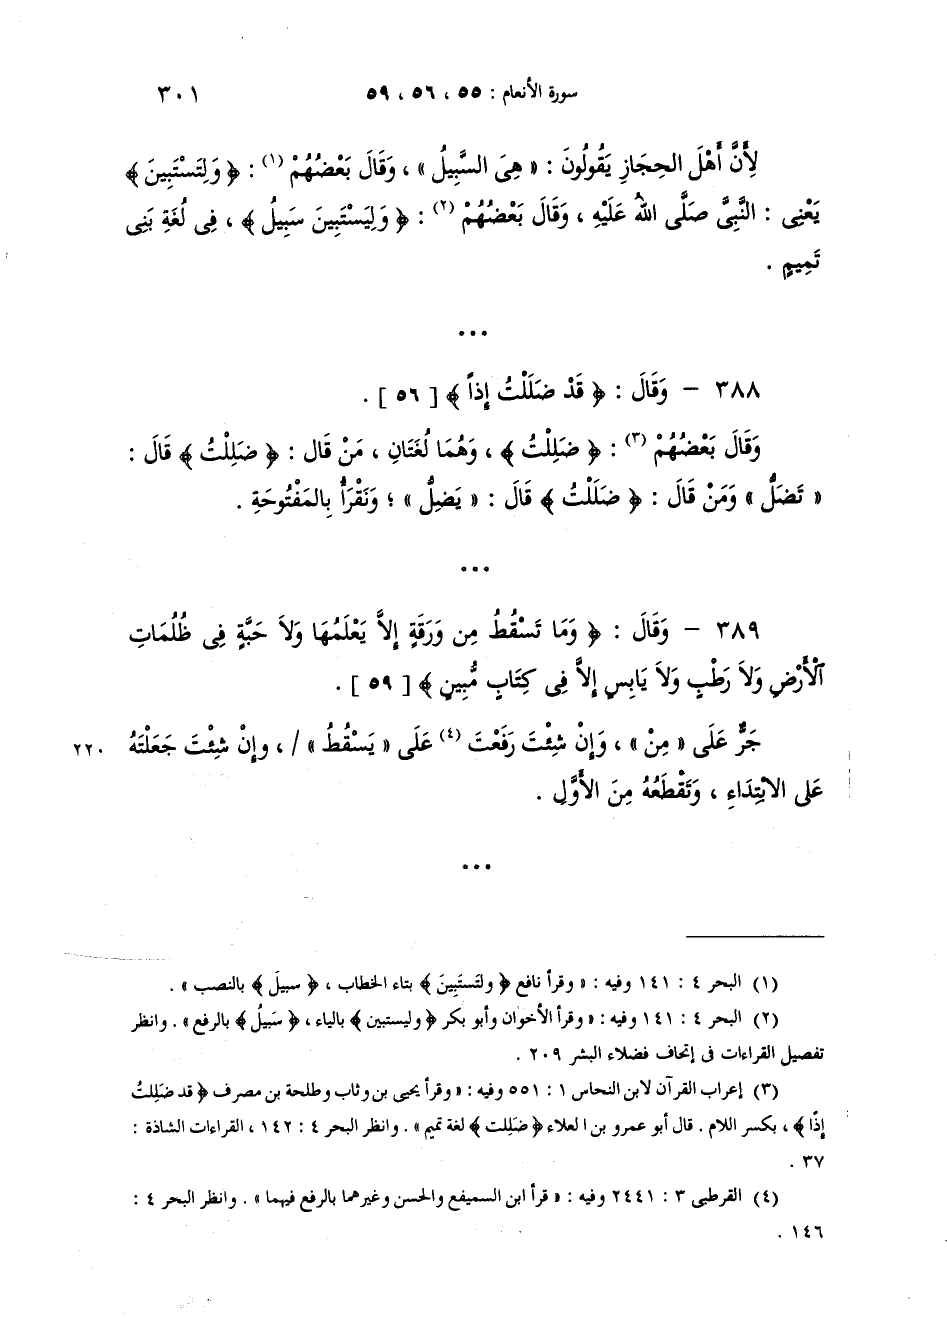 سورة الأنعام : ٥٥ ، ٥٦ ، ٥٩ ٣٠١
لِأَنَّ أَهْلَ الحِجَازِ يَقُولُونَ : « هِىَ السَّبِيلُ » ، وَقَالَ بَعْضُهُمْ (١) : ﴿ وَلِتَسْتَبِينَ ﴾
يَعْنِى : النَّبِىَّ صَلَّى اللهُ عَلَيْهِ ، وَقَالَ بَعْضُهُمْ (٢) : ﴿ وَلِيَسْتَبِينَ سَبِيلُ ﴾ ، فِى لُغَةِ بَنِى
تَمِيمٍ .
•••
٣٨٨ – وَقَالَ : ﴿ قَدْ ضَلَلْتُ إِذاً ﴾ [ ٥٦ ] .
وَقَالَ بَعْضُهُمْ (٣) : ﴿ ضَلِلْتُ ﴾ ، وَهُمَا لُغَتَانِ ، مَنْ قَال : ﴿ ضَلِلْتُ ﴾ قَالَ :
« تَضَلُّ » وَمَنْ قَالَ : ﴿ ضَلَلْتُ ﴾ قَالَ : « يَضِلُّ » ؛ وَنَقْرَأُ بِالمَفْتُوحَةِ .
•••
٣٨٩ – وَقَالَ : ﴿ وَمَا تَسْقُطُ مِن وَرَقَةٍ إِلاَّ يَعْلَمُهَا وَلاَ حَبَّةٍ فِى ظُلُمَاتِ
ٱلْأَرْضِ وَلاَ رَطْبٍ وَلاَ يَابِسٍ إِلاَّ فِى كِتَابٍ مُّبِينٍ ﴾ [ ٥٩ ] .
جَرٌّ عَلَى « مِنْ » ، وَإِنْ شِئْتَ رَفَعْتَ (٤) عَلَى « يَسْقُطُ » / ، وإِنْ شِئْتَ جَعَلْتَهُ ٢٢٠
عَلى الابْتِدَاءِ ، وَتَقْطَعُهُ مِنَ الأَوَّلِ .
•••
(١) البحر ٤ : ١٤١ وفيه : « وقرأ نافع ﴿ ولتَستَبِينَ ﴾ بتاء الخطاب ، ﴿ سبيلَ ﴾ بالنصب » .
(٢) البحر ٤ : ١٤١ وفيه : « وقرأ الأخوان وأبو بكر ﴿ وليستبين ﴾ بالياء ، ﴿ سَبِيلُ ﴾ بالرفع » . وانظر
تفصيل القراءات فى إتحاف فضلاء البشر ٢٠٩ .
(٣) إعراب القرآن لابن النحاس ١ : ٥٥١ وفيه : « وقرأ يحيى بن وثاب وطلحة بن مصرف ﴿ قد ضَلِلتُ
إذًا ﴾ ، بكسر اللام . قال أبو عمرو بن العلاء ﴿ ضَلِلت ﴾ لغة تميم » . وانظر البحر ٤ : ١٤٢ ، القراءات الشاذة :
٣٧ .
(٤) القرطبى ٣ : ٢٤٤١ وفيه : « قرأ ابن السميفع والحسن وغيرهما بالرفع فيهما » . وانظر البحر ٤ :
١٤٦ .